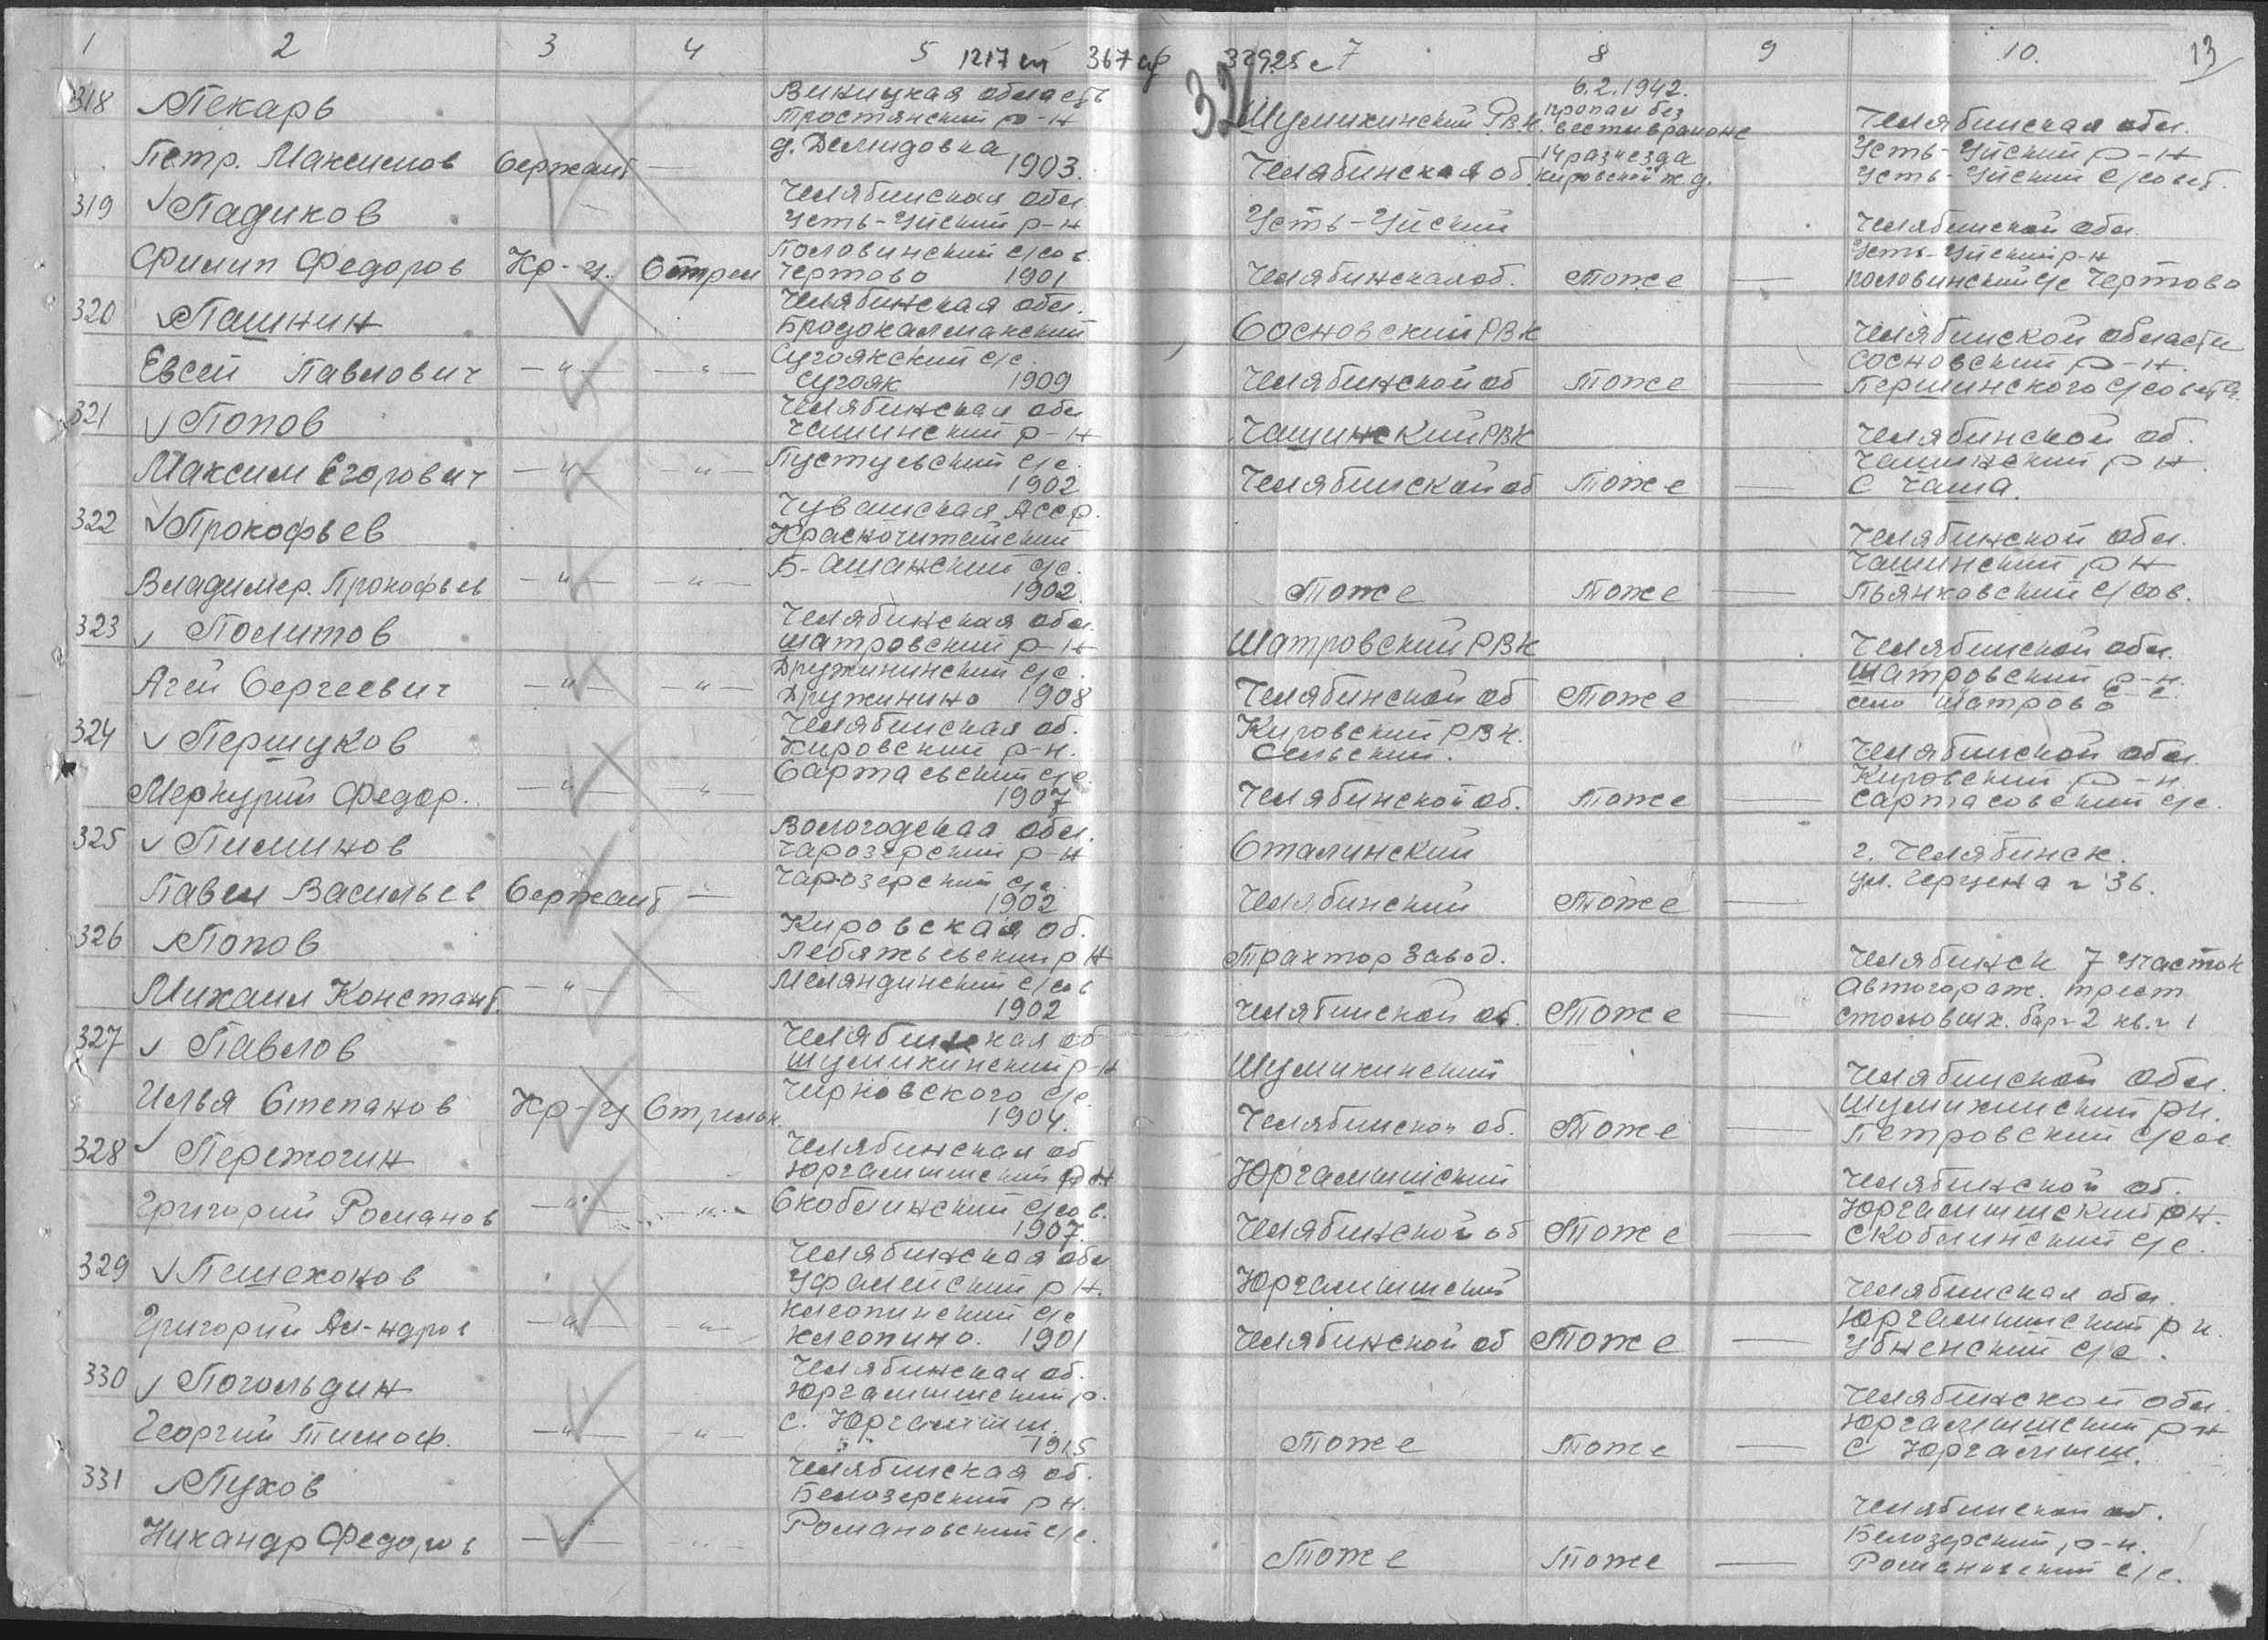 1 2 3 4 5 7 8 9 10. 13
1217 сп 367 сд 32925 с
32
318 Пекарь
Петр. Максимов Сержант —
Виницкая область
Тростянский р-н
д. Демидовка
1903.
Шумихинский РВК.
Челябинская об.
6.2.1942.
пропал без
вести в районе
14 разъезда
Кировской ж.д.
Челябинская обл.
Усть-Уйский р-н
Усть-Уйский с/совет.
319 Падиков
Филип Федоров Кр-ц. Стрел
Челябинская обл
Усть-Уйский р-н
Половинский с/сов
Чертово 1901
Усть-Уйский
Челябинская об. Тоже —
Челябинской обл.
Усть-Уйский р-н
Половинский с/с Чертово
320 Пашнин
Евсей Павлович — " — — " —
Челябинская обл.
Бродокалмакский
Сугоякский с/с.
Сугояк 1909
Сосновский РВК
Челябинской об Тоже —
Челябинской области
Сосновский р-н.
Першинского с/совета.
321 Попов
Максим Егорович — " — — " —
Челябинская обл
Чашинский р-н
Пустуевский с/с.
1902
Чашинский РВК
Челябинской об Тоже —
Челябинской об.
Чашинский р н.
С Чаша.
322 Прокофьев
Владимер. Прокофьев — " — — " —
Чувашская АССР.
Красночитайский
Б-Атанский с/с.
1902.
Тоже Тоже —
Челябинской обл.
Чашинский р н
Пьянковский с/сов.
323 Политов
Агей Сергеевич — " — — " —
Челябинская обл.
Шатровский р-н
Дружининский с/с.
Дружинино 1908
Шатровский РВК
Челябинской об Тоже —
Челябинской обл.
Шатровский р-н.
село Шатрово с-с.
324 Першуков
Меркурий Федор. — " — "
Челябинская об.
Кировский р-н.
Сартасьский с/с.
1907
Кировский РВК.
Сельский.
Челябинской об. Тоже —
Челябинской обл.
Кировский р-н
Сартасовский с/с.
325 Пиминов
Павел Васильев Сержант —
Вологодская обл.
Чарозерский р-н
Чарозерский с/с.
1902
Сталинский
Челябинский Тоже —
г. Челябинск.
ул. Герцена 36.
326 Попов
Михаил Констант. — " — —
Кировская об.
Лебяжьевский р н
Меляндинский с/сов
1902
Трактор завод.
Челябинской об. Тоже —
Челябинск 7 участок
Автогораж. трест
бар 2 кв. 1
327 Павлов
Илья Степанов Кр-ц Стрелок.
Челябинская об
Шумихинский р-н
Чирновского с/с.
1904.
Шумихинский
Челябинской об. Тоже —
Челябинской обл.
Шумихинский рн.
Петровский с/сов.
328 Пережогин
Григорий Романов — " — — " —
Челябинская об
Юргамышский р н
Скоблинский с/сов.
1907.
Юргамышский
Челябинской об Тоже —
Челябинской об.
Юргамышский р н.
Скоблинский с/с.
329 Пешехонов
Григорий Ал-ндров — " — — " —
Челябинская обл
Уфалейский р н.
Клеопинский с/с
Клеопино. 1901
Юргамышский
Челябинской об Тоже —
Челябинская обл.
Юргамышский р н.
с/с.
330 Погольдин
Георгий Тимоф. — " — — " —
Челябинская об.
Юргамышский р.
с. Юргамыш.
1915
Тоже Тоже —
Челябинской обл.
Юргамышский р н
с Юргамыш.
331 Пухов
Никандр Федоров — " — — " —
Челябинская об.
Белозерский р н.
Романовский с/с.
Тоже Тоже —
Челябинской об.
Белозерский р-н.
Романовский с/с.